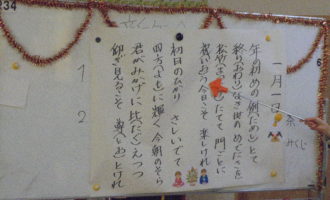 一月一日
年の初めの 例(ためし)とて
終り(おわり)なき世の めでたさを
たてて 門ごとに
う今日こそ 楽しけれ
初日のひかり さしいでて
四方(よも)に輝く 今朝のそら
君がみかげに 比(たぐ)えつつ
仰ぎ見るこそ 尊(とお)とけれ
1
2
234
みくじ